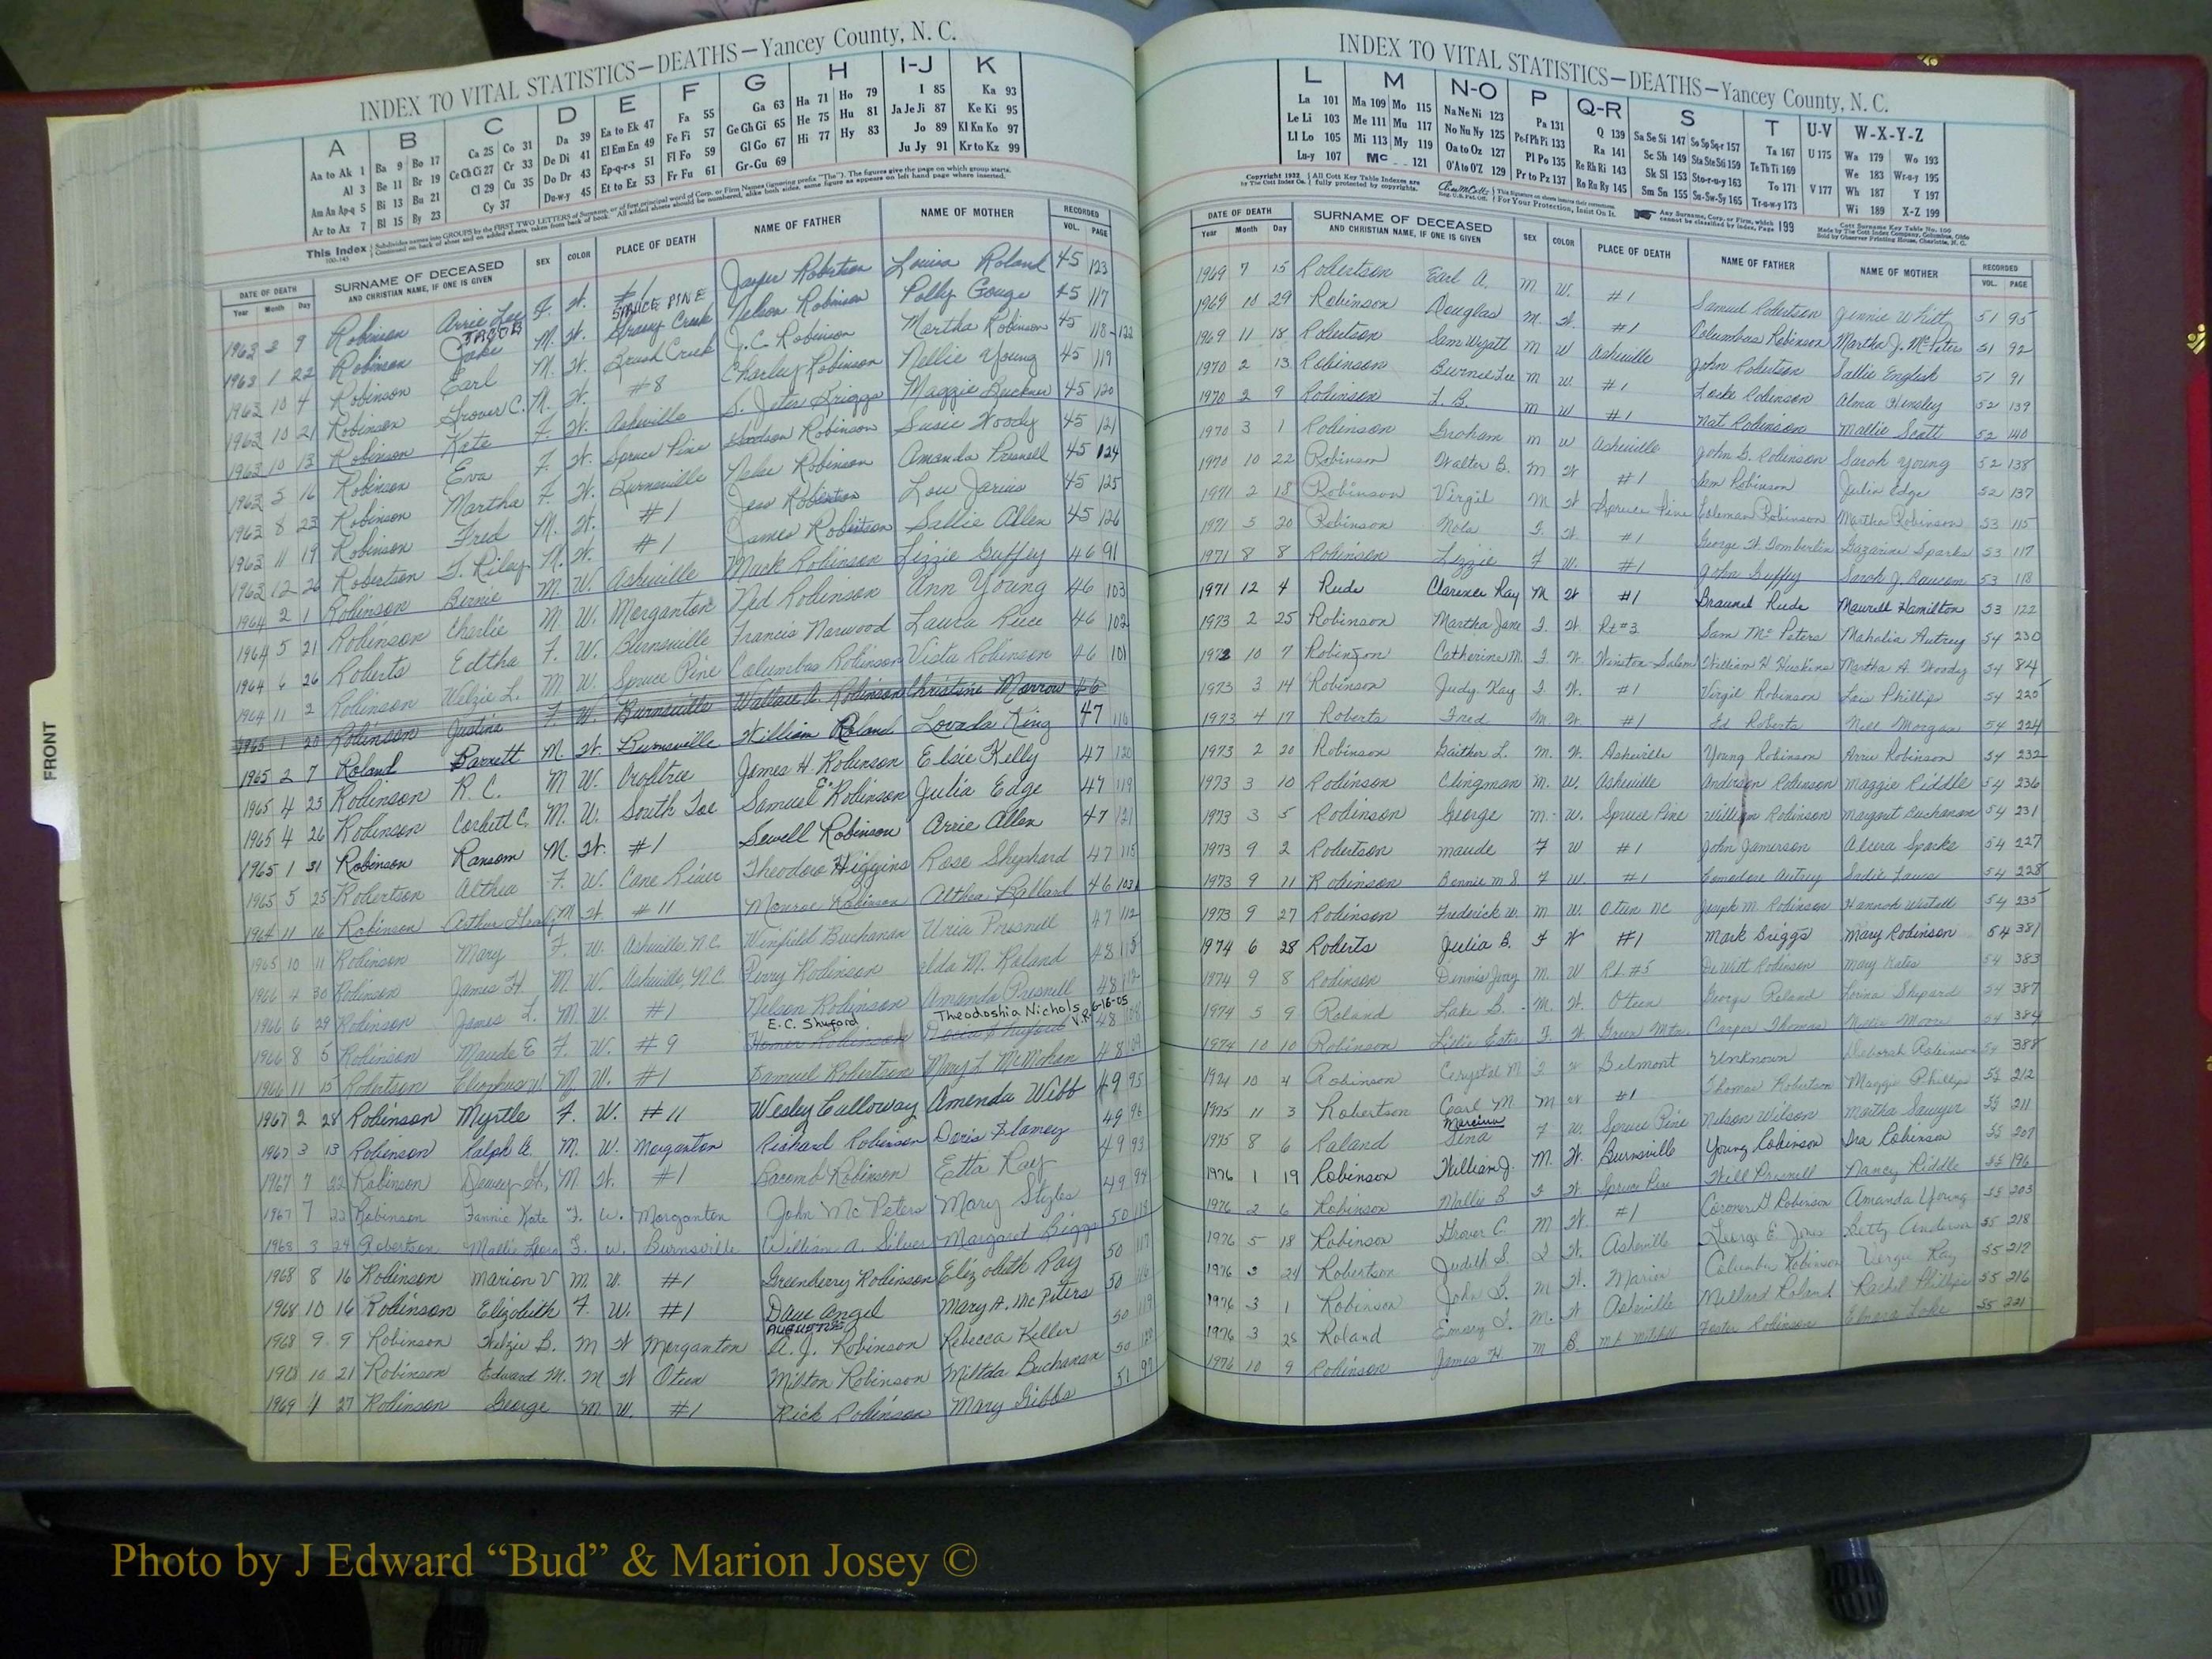 INDEX TO VITAL STATISTICS—DEATHS—Yancey County, N. C.
A B C D E F G H I-J K
Aa to Ak 1 Ba 9 Bo 17 Ca 25 Co 31 Da 39 Ea to Ek 47 Fa 55 Ga 63 Ha 71 Ho 79 I 85 Ka 93
Al 3 Be 11 Br 19 Ce Ch Ci 27 Cr 33 De Di 41 El Em En 49 Fe Fi 57 Ge Gh Gi 65 He 75 Hu 81 Ja Je Ji 87 Ke Ki 95
Am An Ap-q 5 Bi 13 Bu 21 Cl 29 Cu 35 Do Dr 43 Ep-q-r-s 51 Fl Fo 59 Gl Go 67 Hi 77 Hy 83 Jo 89 Kl Kn Ko 97
Ar to Az 7 Bl 15 By 23 Cy 37 Du-w-y 45 Et to Ez 53 Fr Fu 61 Gr-Gu 69 Ju Jy 91 Kr to Kz 99
This Index
DATE OF DEATH SURNAME OF DECEASED SEX COLOR PLACE OF DEATH NAME OF FATHER NAME OF MOTHER RECORDED
Year Month Day AND CHRISTIAN NAME, IF ONE IS GIVEN VOL. PAGE
1963 2 9 Robinson Arrie Lee F. W. #1 Jasper Robertson Louisa Roland 45 123
1963 1 22 Robinson Jake JACOB M. W. Grassy Creek SPRUCE PINE Nelson Robinson Polly Gouge 45 117
1963 10 4 Robinson Earl M. W. Brush Creek J. C. Robinson Martha Robinson 45 118-122
1963 10 21 Robinson Grover C. M. W. #8 Charley Robinson Nellie Young 45 119
1963 10 13 Robinson Kate F. W. Asheville S. Jeter Briggs Maggie Buckner 45 120
1963 5 16 Robinson Eva F. W. Spruce Pine Robinson Susie Woody 45 121
1963 8 23 Robinson Martha F. W. Burnsville Robinson Amanda Presnell 45 124
1963 11 19 Robinson Fred M. W. #1 Jess Robinson Lou Jarvis 45 125
1963 12 26 Robertson T. Riley M. W. #1 James Robertson Sallie Allen 45 126
1964 2 1 Robinson Bernie M. W. Asheville Mack Robinson Lizzie Guffey 46 91
1964 5 21 Robinson Charlie M W. Morganton Ned Robinson Ann Young 46 103
1964 6 26 Roberts Edtha F. W. Burnsville Francis Norwood Laura Rice 46 102
1964 11 2 Robinson Welzie L. M W. Spruce Pine Columbus Robinson Vista Robinson 46 101
1965 1 20 Robinson Justina F W. Burnsville Wallace A. Robinson Christine Morrow 46
1965 2 7 Roland Barrett M. W. Burnsville William Roland Lovada King 47 116
1965 4 23 Robinson R. C. M W. Crabtree James H Robinson Elsie Kelly 47 120
1965 4 26 Robinson Corbett C. M. W. South Toe Samuel E. Robinson Julia Edge 47 119
1965 1 31 Robinson Ransom M. W. #1 Sewell Robinson Arrie Allen 47 121
1965 5 25 Robertson Althea F. W. Cane River Theodore Higgins Rose Shephard 47 115
1964 11 16 Robinson Arthur M W. #11 Monroe Robinson Althea Pollard 46 103
1965 10 11 Robinson Mary F. W. Asheville N.C. Winfield Buchanan Uria Presnell 47 112
1966 4 30 Robinson James H. M W. Asheville, N.C. Perry Robinson Ida M. Roland 48
1966 6 29 Robinson James L. M. W. #1 Nelson Robinson Amanda Presnell 48
E.C. Shuford Theodoshia Nichols V.R. 6-16-05
1966 8 5 Robinson Maude E F. W. #9 Homer Robinson 48
1966 11 15 Robertson M. W. #1 Samuel Robertson Mary L McMahan 48
1967 2 28 Robinson Myrtle F. W. #11 Wesley Calloway Amenda Webb 49 95
1967 3 13 Robinson Ralph A. M. W. Morganton Richard Robinson Doris Flamey 49 96
1967 7 22 Robinson Dewey H., M. W. #1 Bacomb Robinson Etta Ray 49 93
1967 7 22 Robinson Fannie Kate F. W. Morganton John McPeters Mary Styles 49 94
1968 3 24 Robertson Mallie F. W. Burnsville William A. Silver Margaret Biggs 50 118
1968 8 16 Robinson Marion V M. W. #1 Greenberry Robinson Elizabeth Ray 50 117
1968 10 16 Robinson Elizabeth F. W. #1 Dave Angel Mary A. McPeters 50
1968 9 9 Robinson Welzie B. M W Morganton A. J. Robinson Rebecca Keller 50 119
1968 10 21 Robinson Edward M. M W Oteen Milton Robinson Matilda Buchanan 50 120
1969 4 27 Robinson George M W. #1 Rick Robinson Mary Gibbs 51 97
FRONT
INDEX TO VITAL STATISTICS—DEATHS—Yancey County, N. C.
L M N-O P Q-R S T U-V W-X-Y-Z
La 101 Ma 109 Mo 115 Na Ne Ni 123 Pa 131 Q 139 Sa Se Si 147 So Sp Sq-r 157 Ta 167 U 175 Wa 179 Wo 193
Le Li 103 Me 111 Mu 117 No Nu Ny 125 Pe-f Ph Pi 133 Ra 141 Sc Sh 149 Sta Ste Sti 159 Te Th Ti 169 We 183 Wr-u-y 195
Ll Lo 105 Mi 113 My 119 Oa to Oz 127 Pl Po 135 Re Rh Ri 143 Sk Sl 153 Sto-r-u-y 163 To 171 V 177 Wh 187 Y 197
Lu-y 107 Mc 121 O'A to O'Z 129 Pr to Pz 137 Ro Ru Ry 145 Sm Sn 155 Su-Sw-Sy 165 Tr-u-w-y 173 Wi 189 X-Z 199
Copyright 1932 All Cott Key Table Indexes are fully protected by copyrights. For Your Protection, Insist On It. Any Surname, Corp. or Firm, which cannot be classified by Index, Page 199
DATE OF DEATH SURNAME OF DECEASED SEX COLOR PLACE OF DEATH NAME OF FATHER NAME OF MOTHER RECORDED
Year Month Day AND CHRISTIAN NAME, IF ONE IS GIVEN VOL. PAGE
1969 7 15 Robertson Earl A. M W. #1 Samuel Robertson Jennie Whitt 51 95
1969 10 29 Robinson Douglas M. W. #1 Columbus Robinson Martha J. McPeters 51 92
1969 11 18 Robertson Sam Wyatt M W Asheville John Robertson Sallie English 51 91
1970 2 13 Robinson Burnie Lee M W. #1 Locke Robinson Alma Hensley 52 139
1970 2 9 Robinson L. B. M W #1 Nat Robinson Mallie Scott 52 140
1970 3 1 Robinson Graham M W Asheville John G. Robinson Sarah Young 52 138
1970 10 22 Robinson Walter B. M W #1 Sam Robinson Julia Edge 52 137
1971 2 18 Robinson Virgil M W Spruce Pine Coleman Robinson Martha Robinson 53 115
1971 5 20 Robinson Nola F. W. #1 George W. Tomberlin Sparks 53 117
1971 8 8 Robinson Lizzie F W. #1 John Guffey Sarah J. Baucom 53 118
1971 12 4 Rude Clarence Ray M W #1 Braunel Rude Maurell Hamilton 53 122
1973 2 25 Robinson Martha Jane F. W. Rt #3 Sam McPeters Mahalia Autrey 54 230
1972 10 7 Robinson Catherine M. F W. Winston Salem William H Huskins Martha A. Woody 54 84
1973 3 14 Robinson Judy. Kay F W. #1 Virgil Robinson Lois Phillips 54 225
1973 4 17 Roberts Fred M W #1 Ed Roberts Nell Morgan 54 224
1973 2 20 Robinson Gaither L. M. W. Asheville Young Robinson Arru Robinson 54 232
1973 3 10 Robinson Clingman M. W. Asheville Anderson Robinson Maggie Riddle 54 236
1973 3 5 Robinson George M. W. Spruce Pine William Robinson Margaret Buchanan 54 231
1973 9 2 Robertson Maude F W #1 John Jamerson Sparks 54 227
1973 9 11 Robinson Bonnie M S. F W. #1 Comodore Autrey Sadie Laws 54 228
1973 9 27 Robinson Frederick W. M W. Oteen NC Joseph M. Robinson Hannah Westall 54 235
1974 6 28 Roberts Julia B. F W #1 Mark Briggs Mary Robinson 54 381
1974 9 8 Robinson Dennis Jerry M. W Rt. #5 DeWitt Robinson Mary Kates 54 383
1974 5 9 Roland Lake B. M. W. Oteen George Roland Lorina Shepard 54 387
1974 10 10 Robinson F W Green Mtn. Thomas Moore 54 384
1974 10 4 Robinson Crystal M F W Belmont Unknown Deborah Robinson 54 388
1975 11 3 Robertson Carl M. M W #1 Thomas Robertson Maggie Phillips 55 212
1975 8 6 Roland Marcina Sena F W. Spruce Pine Nelson Wilson Martha Sawyer 55 211
1976 1 19 Robinson William J. M. W. Burnsville Young Robinson Ira Robinson 55 207
1976 2 6 Robinson Mallie B F W Spruce Pine Will Presnell Nancy Riddle 55 196
1976 5 18 Robinson Grover C. M W. #1 G Robinson Amanda Young 55 203
1976 3 24 Robertson Judith S. F W. Asheville George E. Jones Betty Anderson 55 218
1976 3 1 Robinson John B. M W. Marion Columbus Robinson Vergie Ray 55 212
1976 3 28 Roland Emory M. W Asheville Millard Roland Rachel Phillips 55 216
1976 10 9 Robinson James H. M B. Mt Mitchell Foster Robinson 55 221
Photo by J Edward “Bud” & Marion Josey ©